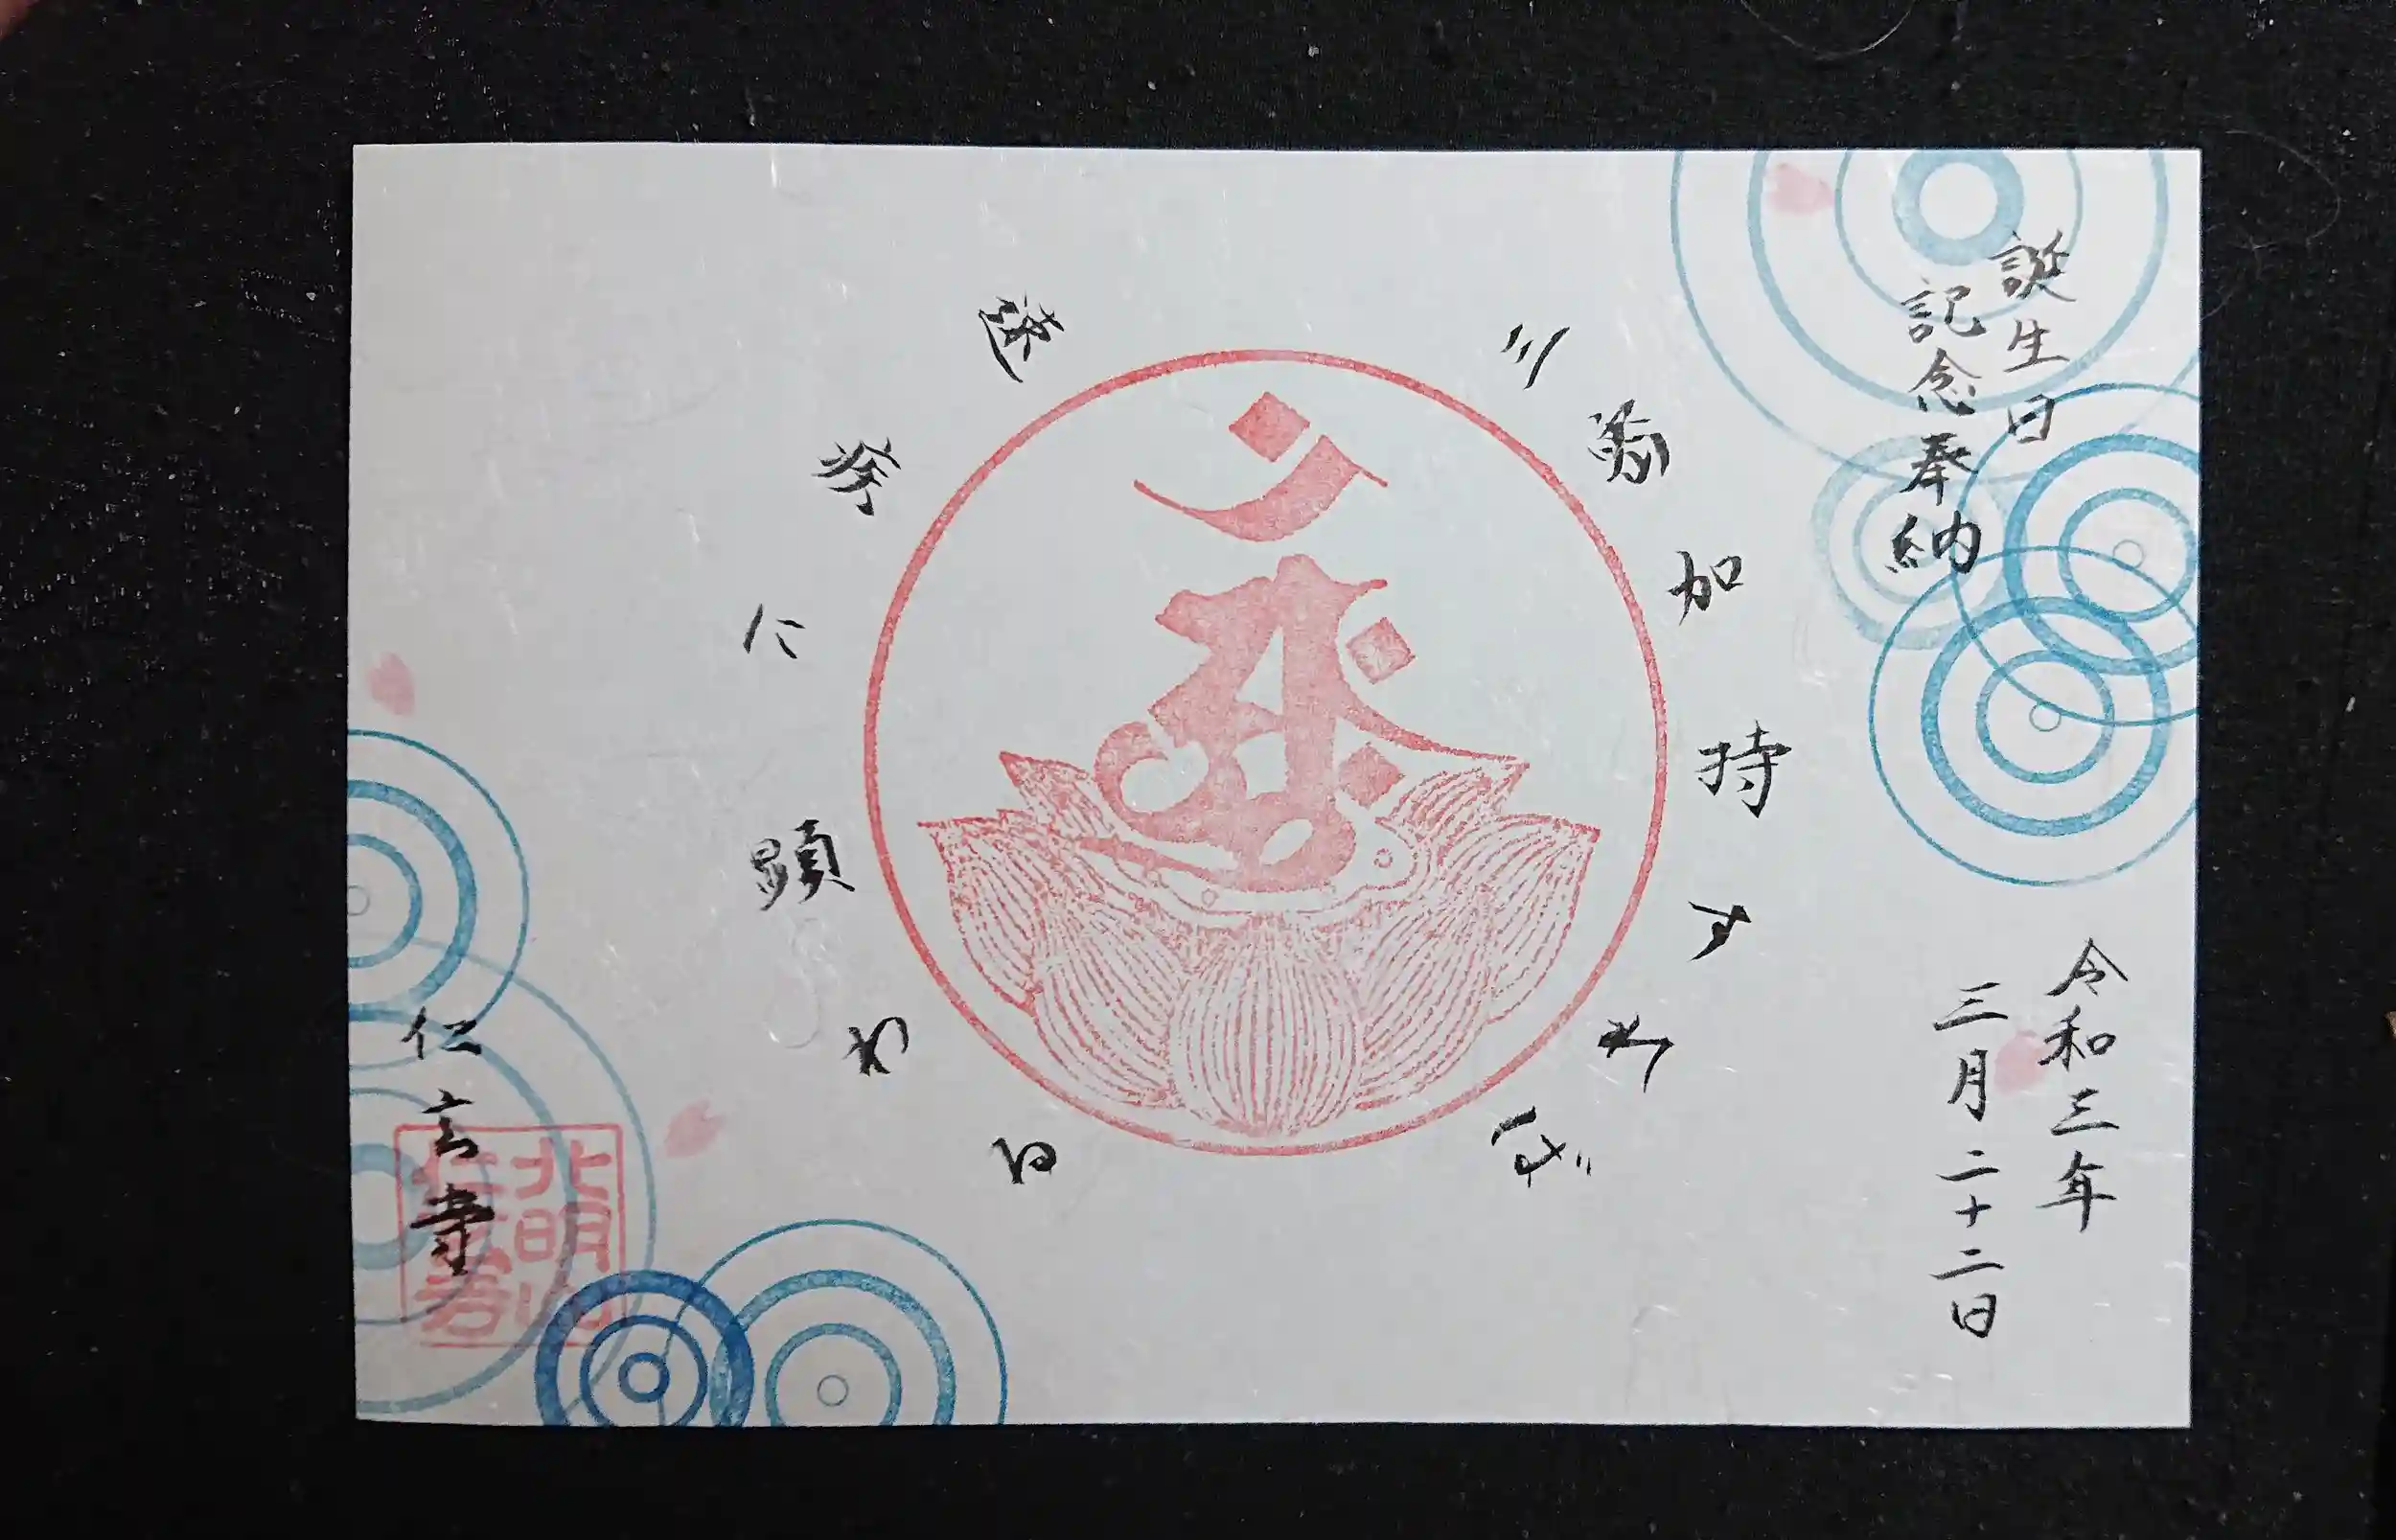 誕生日
記念奉納
令和三年
三月二十二日
三密加持すれば
速疾に顕わる
仁玄寺
北明山
仁玄寺